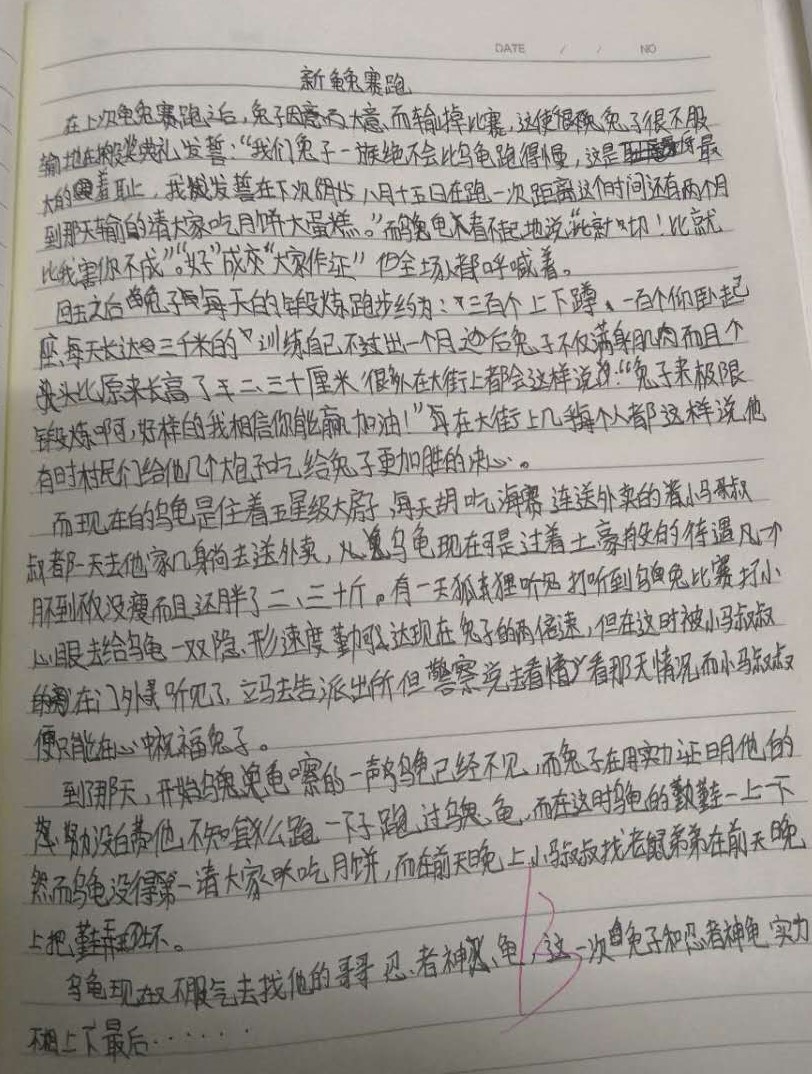 DATE / / NO
新龟兔赛跑
在上次龟兔赛跑之后，兔子因意大意而输掉比赛，这使兔子很不服
输地在颁奖典礼发誓："我们兔子一族绝不会比乌龟跑得慢，这是最
大的羞耻，我发誓在下次八月十五日在跑一次距离这个时间还有两个月
到那天输的请大家吃月饼大蛋糕。"而乌龟看不起地说"此就切！比就
比我害你不成"。"好"成交"大家作证"他全场人都呼喊着。
回去之后兔子每天的锻炼跑步约为："三百个上下蹲、一百个仰卧起
座，每天长达三千米的"训练自己不过出一个月之后兔子不仅满身肌肉而且个
头比原来长高了二、三十厘米，很多人在大街上都会这样说："兔子来极限
锻炼啊，好样的我相信你能赢加油！"每在大街上几乎每个人都这样说他
有时村民们给他几个大包子吃给兔子更加胜的决心。
而现在的乌龟是住着五星级大房子，每天胡吃海塞连送外卖的小马叔
叔都一天去他家几身尚去送外卖，乌龟现在可是过着土豪般的待遇几个
月不到不仅没瘦而且还胖了二、三十斤。有一天狐狸听见打听到乌龟兔比赛打小
心眼去给乌龟一双隐形速度鞋可达现在兔子的两倍速，但在这时被小马叔叔
在门外听见了，立马去告派出所但警察说去看情看那天情况而小马叔叔
便只能在心中祝福兔子。
到了那天，开始乌龟嚓的一声乌龟已经不见，而兔子在用实力证明他的
努力没白费他不知怎么跑一下子跑过乌龟，而在这时乌龟的鞋一上一下
然而乌龟没得第一请大家吃月饼，而在前天晚上小叔叔找老鼠弟弟在前天晚
上把鞋弄坏。
乌龟现在又不服气去找他的哥哥忍者神龟，这一次兔子和忍者神龟实力
不相上下最后……
B